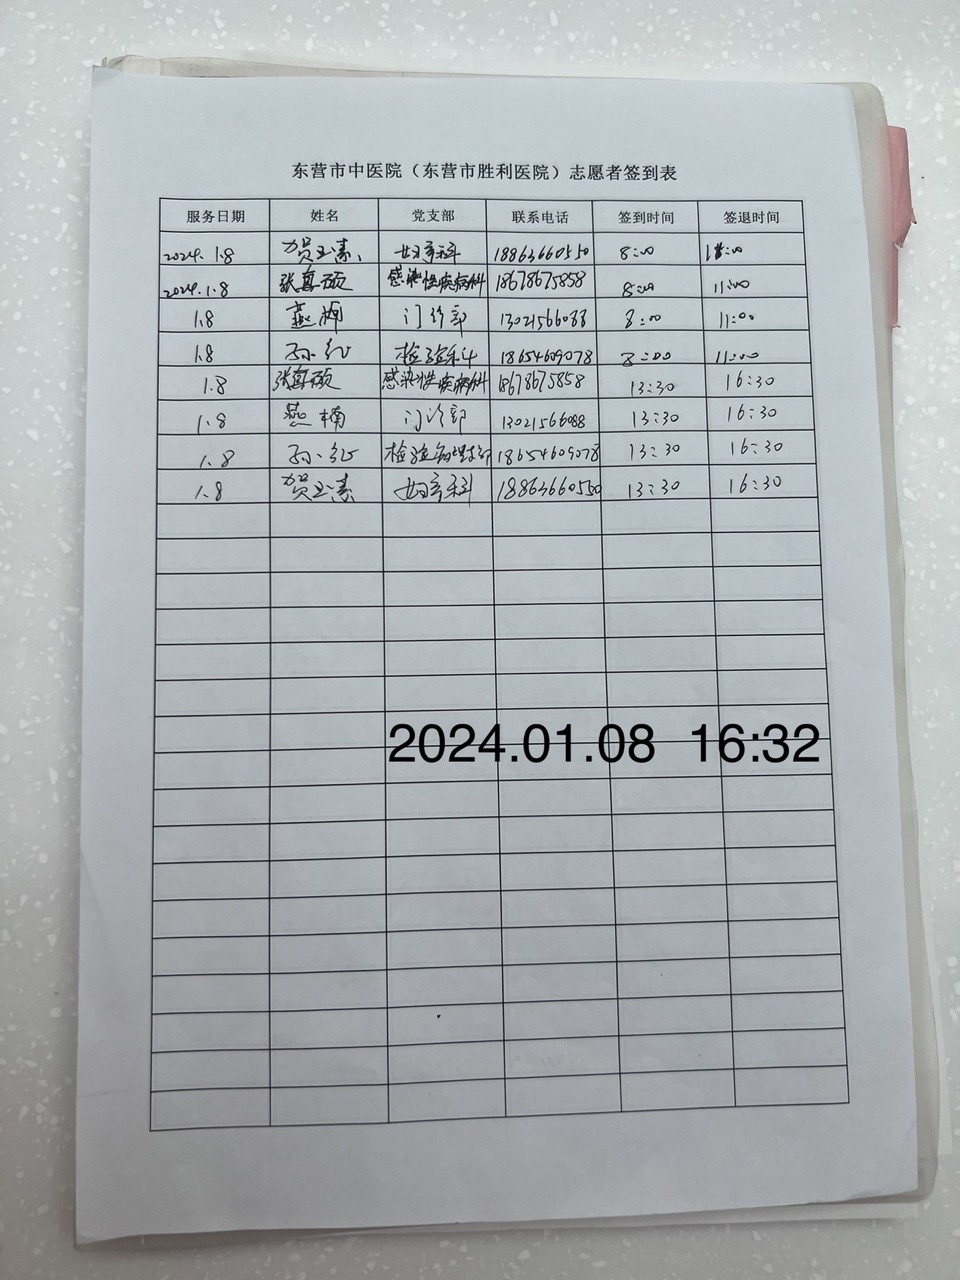 东营市中医院（东营市胜利医院）志愿者签到表
服务日期 姓名 党支部 联系电话 签到时间 签退时间
2024.1.8 贺玉素 妇产科 18863660550 8:00 11:00
2024.1.8 张真硕 感染性疾病科 18678675858 8:00 11:00
1.8 燕楠 门诊部 13021566088 8:00 11:00
1.8 孙红 检验科 18654609078 8:00 11:00
1.8 张真硕 感染性疾病科 18678675858 13:30 16:30
1.8 燕楠 门诊部 13021566088 13:30 16:30
1.8 孙红 检验 18654609078 13:30 16:30
1.8 贺玉素 妇产科 18863660550 13:30 16:30
2024.01.08 16:32